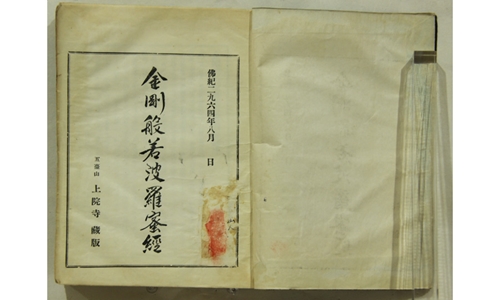 佛紀二九六四年八月 日
金剛般若波羅蜜經
上院寺 藏版